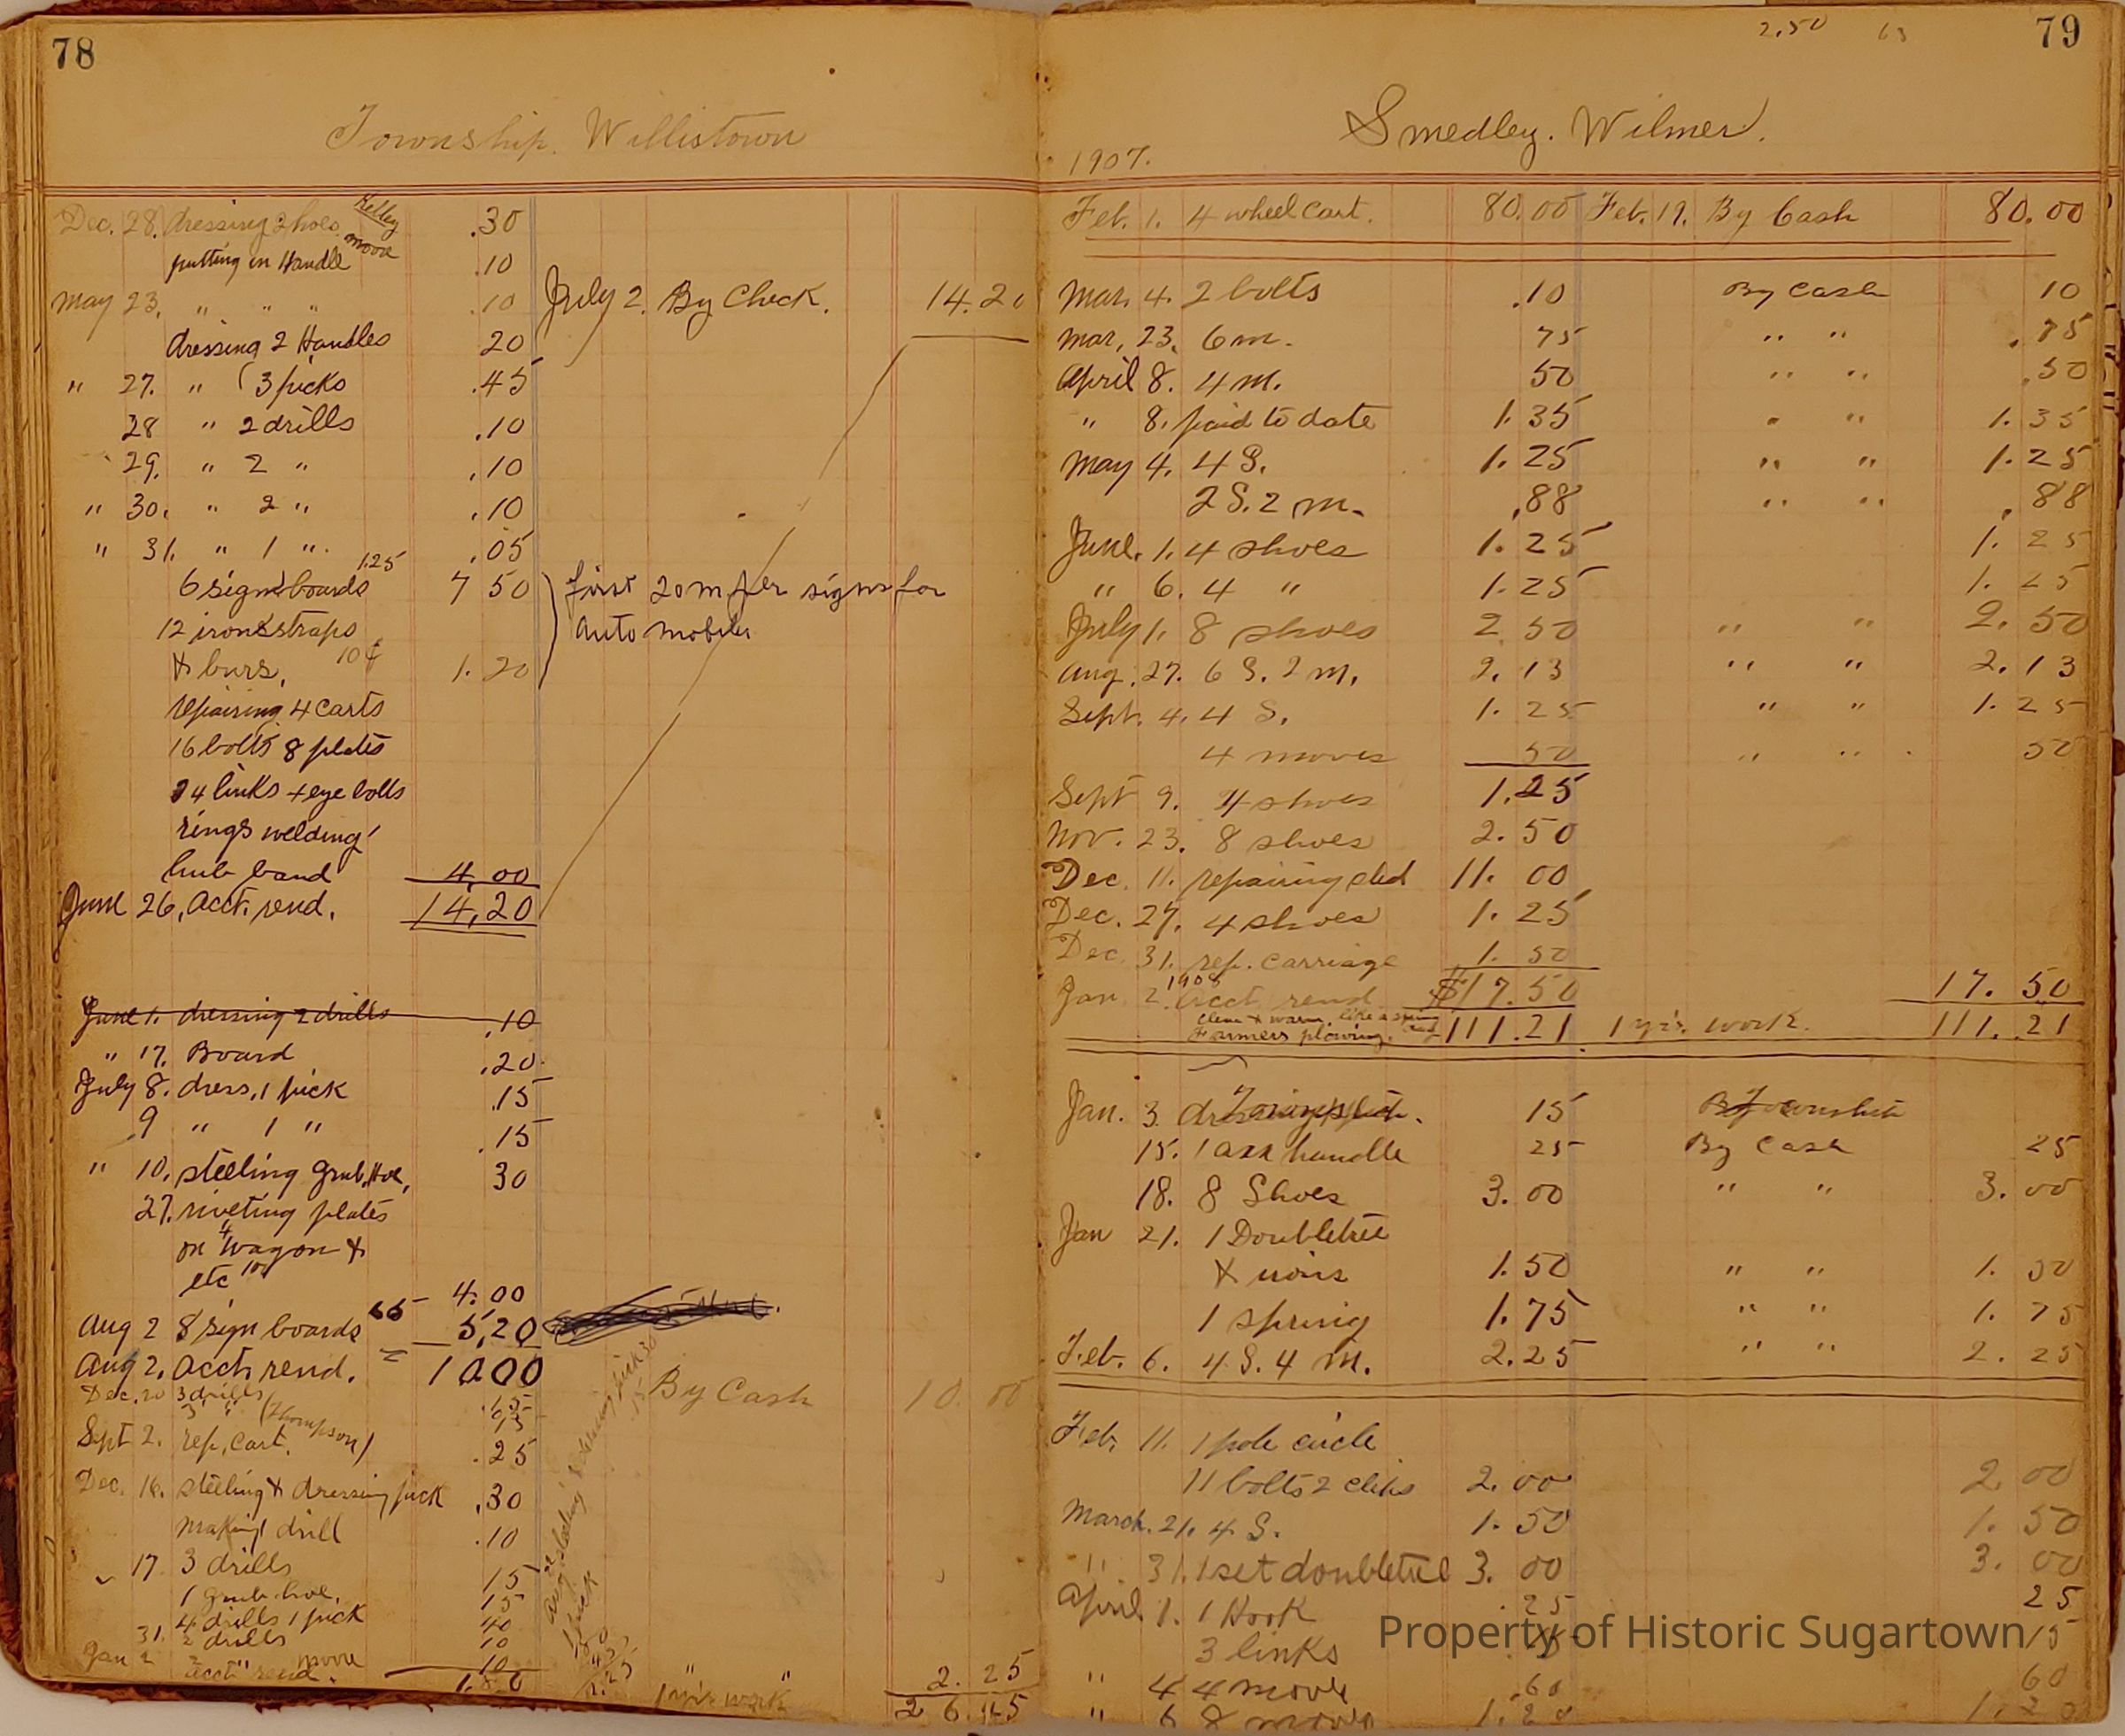 78
Township. Willistown
Dec. 28. dressing 2 hoes. Kelley moore .30
putting in Handle .10
May 23. " " " .10 July 2. By Check. 14.20
dressing 2 Handles 20
" 27. " 3 picks .45
28 " 2 drills .10
29. " 2 " .10
" 30. " 2 " .10
" 31. " 1 ". .05
6 sign boards 1.25 7 50 first 20 m per signs for
12 iron straps Auto mobiles
& burs, 10¢ 1.20
repairing 4 carts
16 bolts 8 plates
24 links + eye bolts
rings welding
hub band 4.00
June 26, acct. rend. 14,20
June 1. dressing 2 drills .10
" 17. Board .20
July 8. dress. 1 pick .15
9 " 1 " .15
" 10. steeling Grub. Hoe, 30
27. riveting plates
on 4 wagon &
etc 4.00
Aug 2 8 sign boards 65 5,20
Aug 2. acct. rend. = 1000
By Cash 10.00
Dec. 20 3 drills .15
3 " (Thompson) 15
Sept 2. rep, Cart. .25
Dec. 16. steeling & dressing pick .30
making 1 drill .10
" 17 3 drills 15
1 grub hoe. 15
4 drills 1 pick 40
31. 2 drills 10
Jan 2 2 " moore 10
acct rend.
" " 2.25
1 yr's work 26.45
2.50
79
Smedley. Wilmer.
1907.
Feb. 1. 4 wheel Cart. 80.00 Feb. 19. By Cash 80.00
Mar. 4. 2 bolts .10 By Cash 10
Mar, 23. 6 m. 75 " " .75
April 8. 4 m. 50 " " .50
" 8. paid to date 1.35 " " 1.35
May 4. 4 S. 1.25 " " 1.25
2 S. 2 m. .88 " " .88
June. 1. 4 shoes 1.25 1.25
" 6. 4 " 1.25 1.25
July 1. 8 shoes 2 50 " " 2.50
Aug. 27. 6 S. 2 m. 2.13 " " 2.13
Sept. 4. 4 S. 1.25 " " 1.25
4 moves 50 " " 50
Sept 9. 4 shoes 1.25
Nov. 23. 8 shoes 2.50
Dec. 11. repairing sled 11.00
Dec. 27. 4 shoes 1.25
Dec. 31. rep. carriage 1.50
Jan 2. 1908 acct rend $17.50 17.50
Clear & warm, like a spring day
Farmers plowing. 111.21 1 yr's. work. 111.21
Jan. 3. 15 By Township
15. 1 axe handle 25 By Cash 25
18. 8 Shoes 3.00 " " 3.00
Jan 21. 1 Doubletree
& irons 1.50 " " 1.50
1 spring 1.75 " " 1.75
Feb. 6. 4 S. 4 m. 2.25 " " 2.25
Feb. 11. 1 pole circle
11 bolts 2 clips 2.00 2.00
March. 21. 4 S. 1.50 1.50
" 31. 1 set doubletree 3.00 3.00
April 1. 1 Hook .25 25
3 links 15 15
" 4 4 move .60 60
" 6 8 moves 1.20 1.20
Property of Historic Sugartown